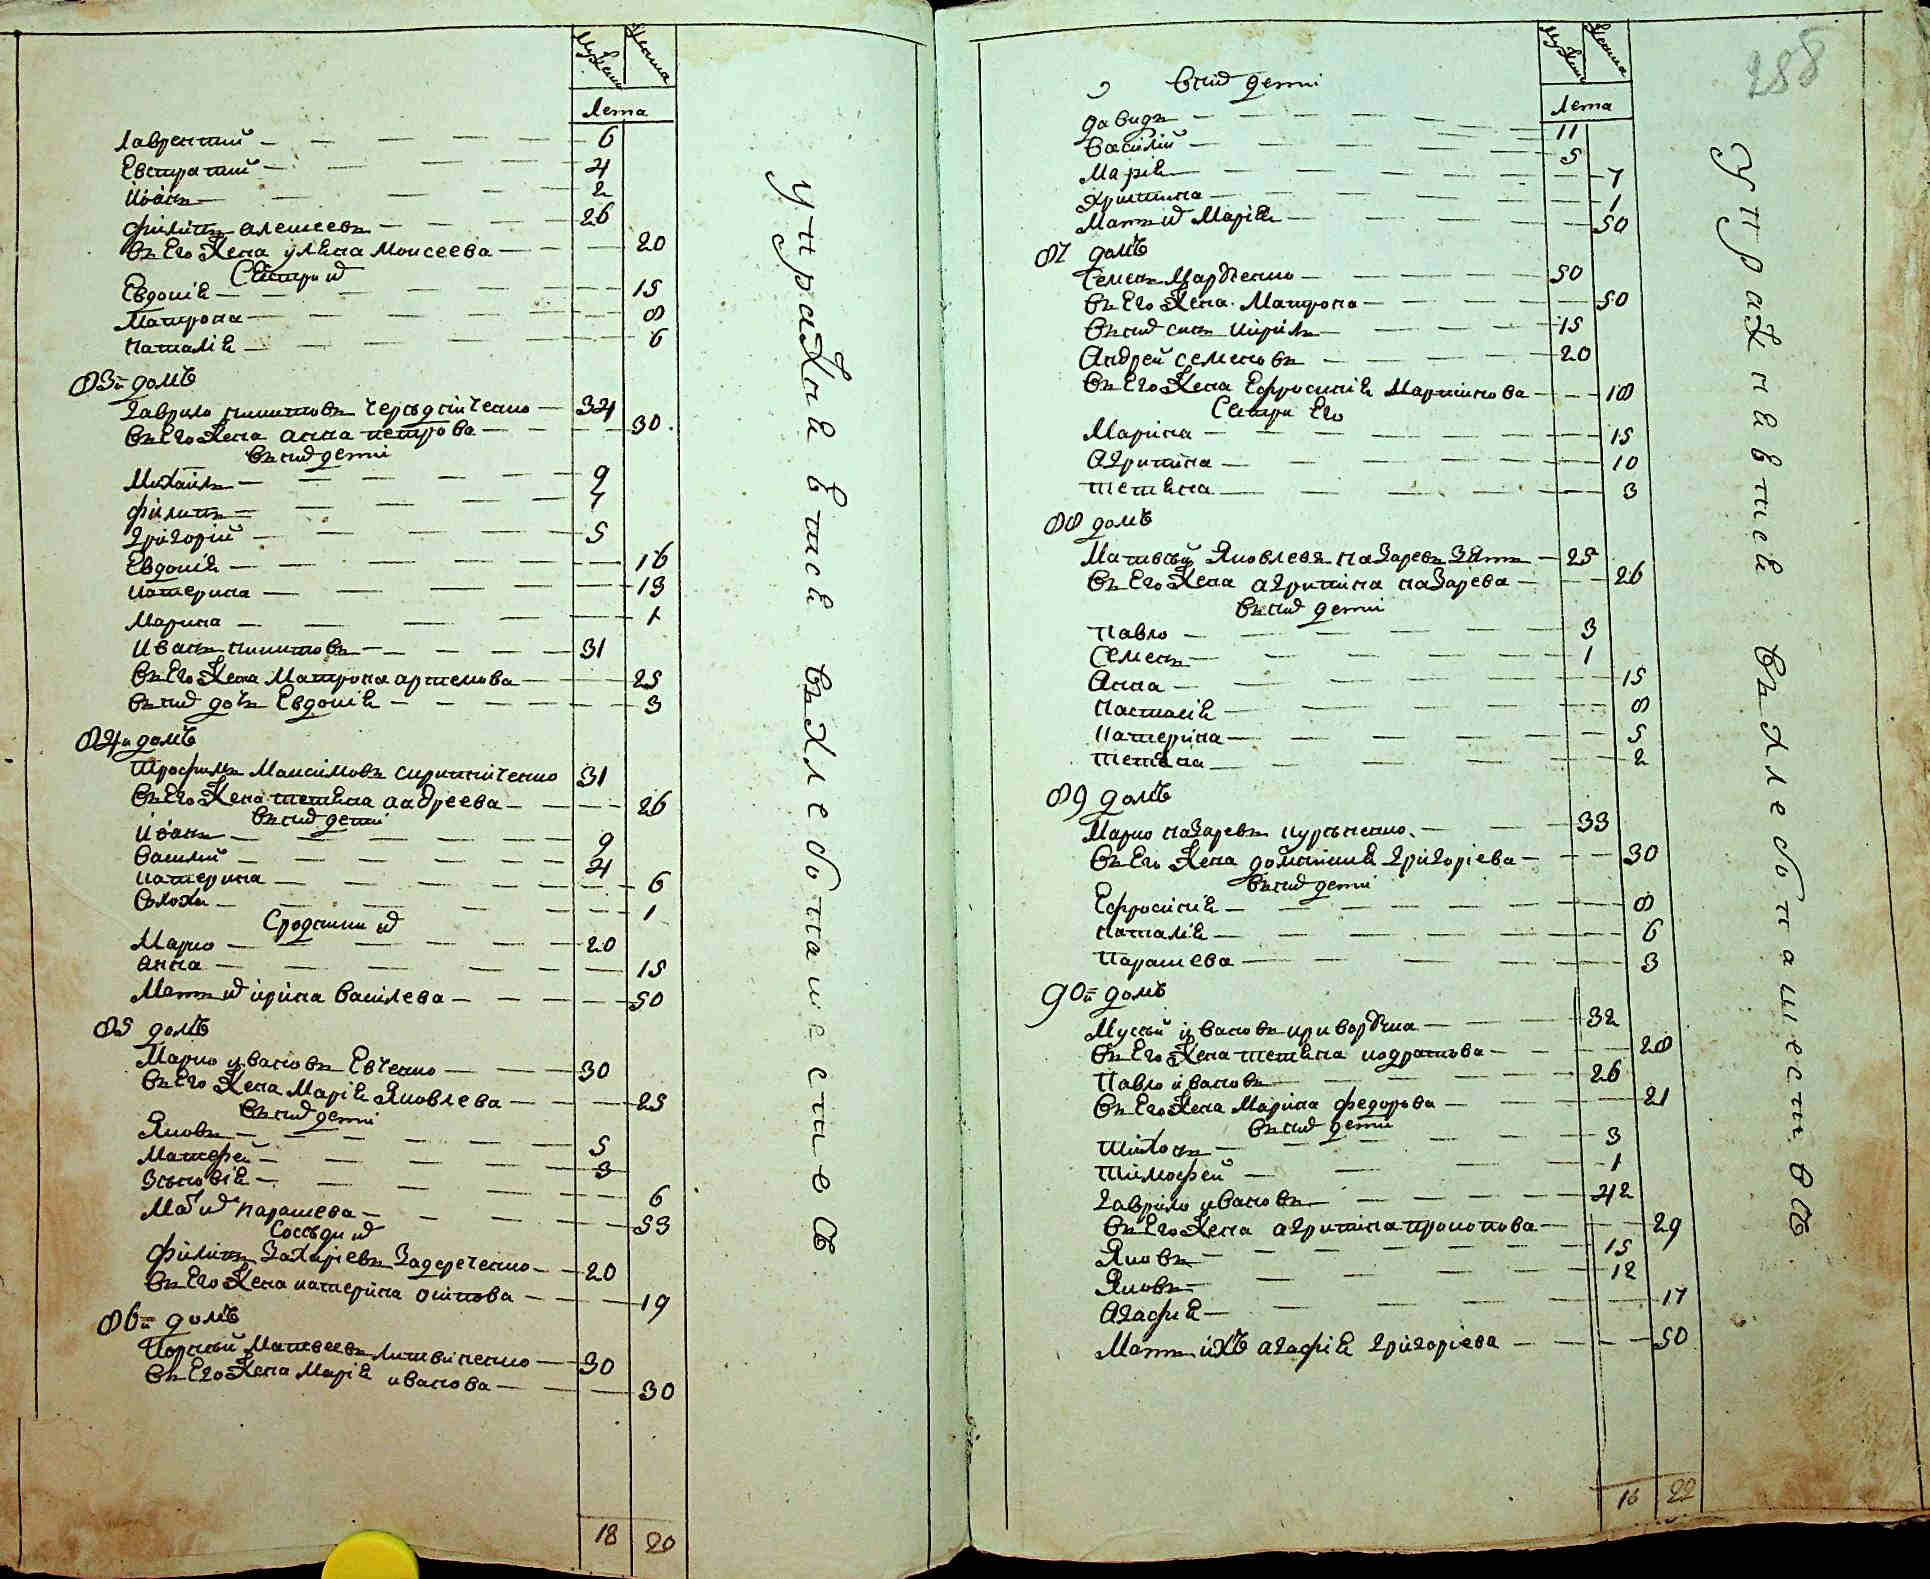 Мужеск Женска
Лета
Лаврентий — 6
Евстратий — 4
Иоанъ — 2
Филипъ Алексеевъ — 26
въ Его Жена Уляна Моисеева — 20
Сестри ей
Евдокія — 15
Матрона — 8
Наталія — 6
83й домъ
Гаврило Никитовъ — 34
въ Его Жена Анна Петрова — 30
въ ных дети
Михаилъ — 9
Филипъ — 7
Григорий — 5
Евдокія — 16
Катерина — 13
Марина — 1
Иванъ Никитовъ — 31
въ Его Жена Матрона Артемова — 25
въ ных дочь Евдокія — 3
84й домъ
Трофимъ Максимовъ 31
въ Его Жена Тетяна Андреева — 26
въ ных дети
Иоанъ — 9
Василий — 4
Катерина — 6
Солоха — 1
Марко — 20
Анна — 15
Мать их Ирина Василева — 50
85 домъ
Марко Ивановъ Евченко — 30
въ Его Жена Марія Яковлева — 25
въ ных дети
Яковъ — 5
Матефей — 3
Зѣновія — 6
их Параскева — 53
Соседи их
Филипъ Захаріевъ Задереченко — 20
въ Его Жена Катерина Осипова — 19
86й домъ
Корней Матвеевъ Литвиненко — 30
въ Его Жена Марія Иванова — 30
18 20
у пражнявтся в хлебопашестве
288
Мужеск Женска
Лета
в них дети
Давидъ — 11
Василій — 5
Марія — 7
Христина — 1
Мать их Марія — 50
87 домъ
Семенъ — 50
въ Его Жена Матрона — 50
въ них синъ Кирилъ — 15
Андрей Семеновъ — 20
въ Его Жена Ефросинія Мартинова — 18
Сестри Его
Марина — 15
Агрипина — 10
Тетяна — 3
88 домъ
Матвѣй Яковлевъ Назаревъ Зять — 25
въ Его Жена Агрипина Назарева — 26
въ них дети
Павло — 3
Семенъ — 1
Анна — 15
Настасія — 8
Катерина — 5
Тетяна — 2
89 домъ
Марко Назаревъ — 33
въ Его Жена Домникия Григоріева — 30
въ них дети
Ефросинія — 8
Наталія — 6
Параскева — 3
90й домъ
Мусѣй Ивановъ — 32
въ Его Жена Тетяна Кодратова — 28
Павло Ивановъ — 26
въ Его Жена Марина Федорова — 21
въ них дети
Тихонъ — 3
Тимофей — 1
Гаврило Ивановъ — 42
въ Его Жена Агрипина Прокопова — 29
Яковъ — 15
Яковъ — 12
Агафия — 17
Мать ихъ Агафія Григоріева — 50
16 22
Упражнявтся въ хлебопашестве